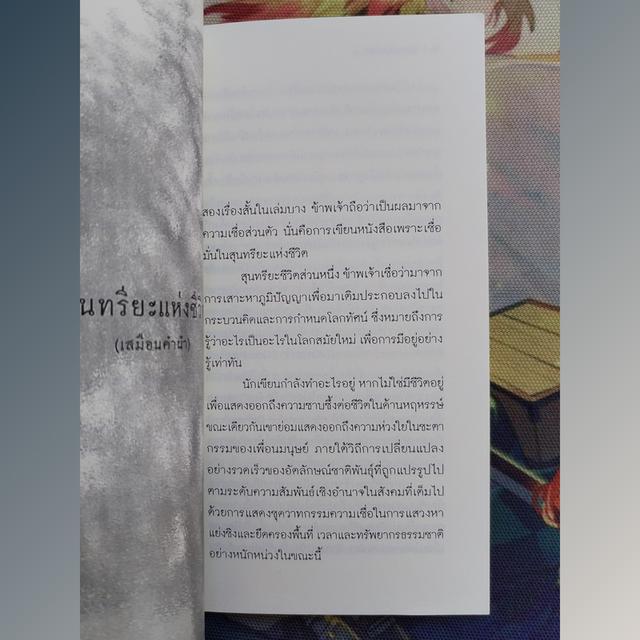 นทรียะแห่งชีวิ
(เสมือนคำนำ)
สองเรื่องสั้นในเล่มบาง ข้าพเจ้าถือว่าเป็นผลมาจาก
ความเชื่อส่วนตัว นั่นคือการเขียนหนังสือเพราะเชื่อ
มั่นในสุนทรียะแห่งชีวิต
สุนทรียะชีวิตส่วนหนึ่ง ข้าพเจ้าเชื่อว่ามาจาก
การเสาะหาภูมิปัญญาเพื่อมาเติมประกอบลงไปใน
กระบวนคิดและการกำหนดโลกทัศน์ ซึ่งหมายถึงการ
รู้ว่าอะไรเป็นอะไรในโลกสมัยใหม่ เพื่อการมีอยู่อย่าง
รู้เท่าทัน
นักเขียนกำลังทำอะไรอยู่ หากไม่ใช่มีชีวิตอยู่
เพื่อแสดงออกถึงความซาบซึ้งต่อชีวิตในด้านหฤหรรษ์
ขณะเดียวกันเขาย่อมแสดงออกถึงความห่วงใยในชะตา
กรรมของเพื่อนมนุษย์ ภายใต้วิถีการเปลี่ยนแปลง
อย่างรวดเร็วของอัตลักษณ์ชาติพันธุ์ที่ถูกแปรรูปไป
ตามระดับความสัมพันธ์เชิงอำนาจในสังคมที่เต็มไป
ด้วยการแสดงชุดวาทกรรมความเชื่อในการแสวงหา
แย่งชิงและยึดครองพื้นที่ เวลาและทรัพยากรธรรมชาติ
อย่างหนักหน่วงในขณะนี้